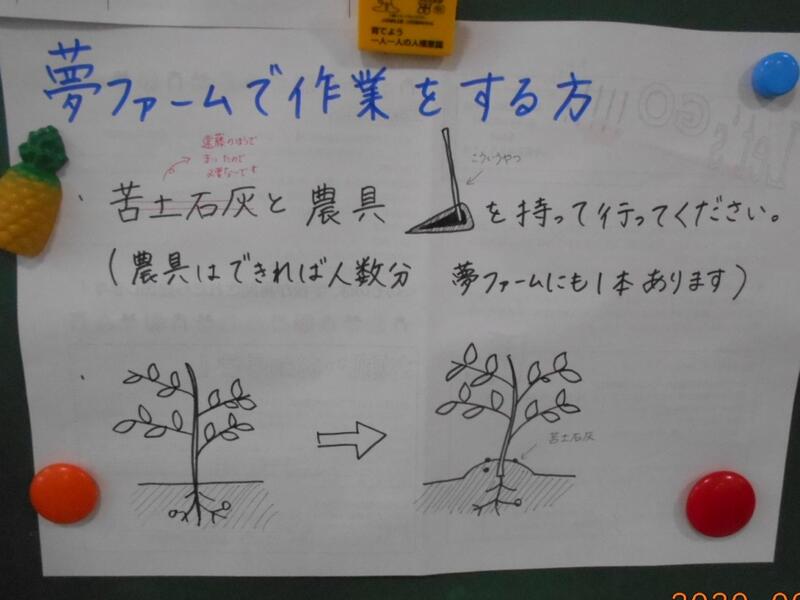 育てよう
一人一人の人権意識
夢ファームで作業をする方
遠藤のほうで
まいたので
必要ないです
こういうやつ
・苦土石灰と農具を持って行ってください。
(農具はできれば人数分 夢ファームにも1本あります)
苦土石灰
Let's GO!!!